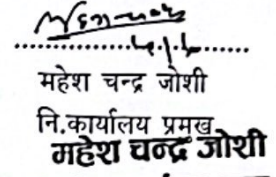 महेश चन्द्र जोशी
नि.कार्यालय प्रमुख
महेश चन्द्र जोशी